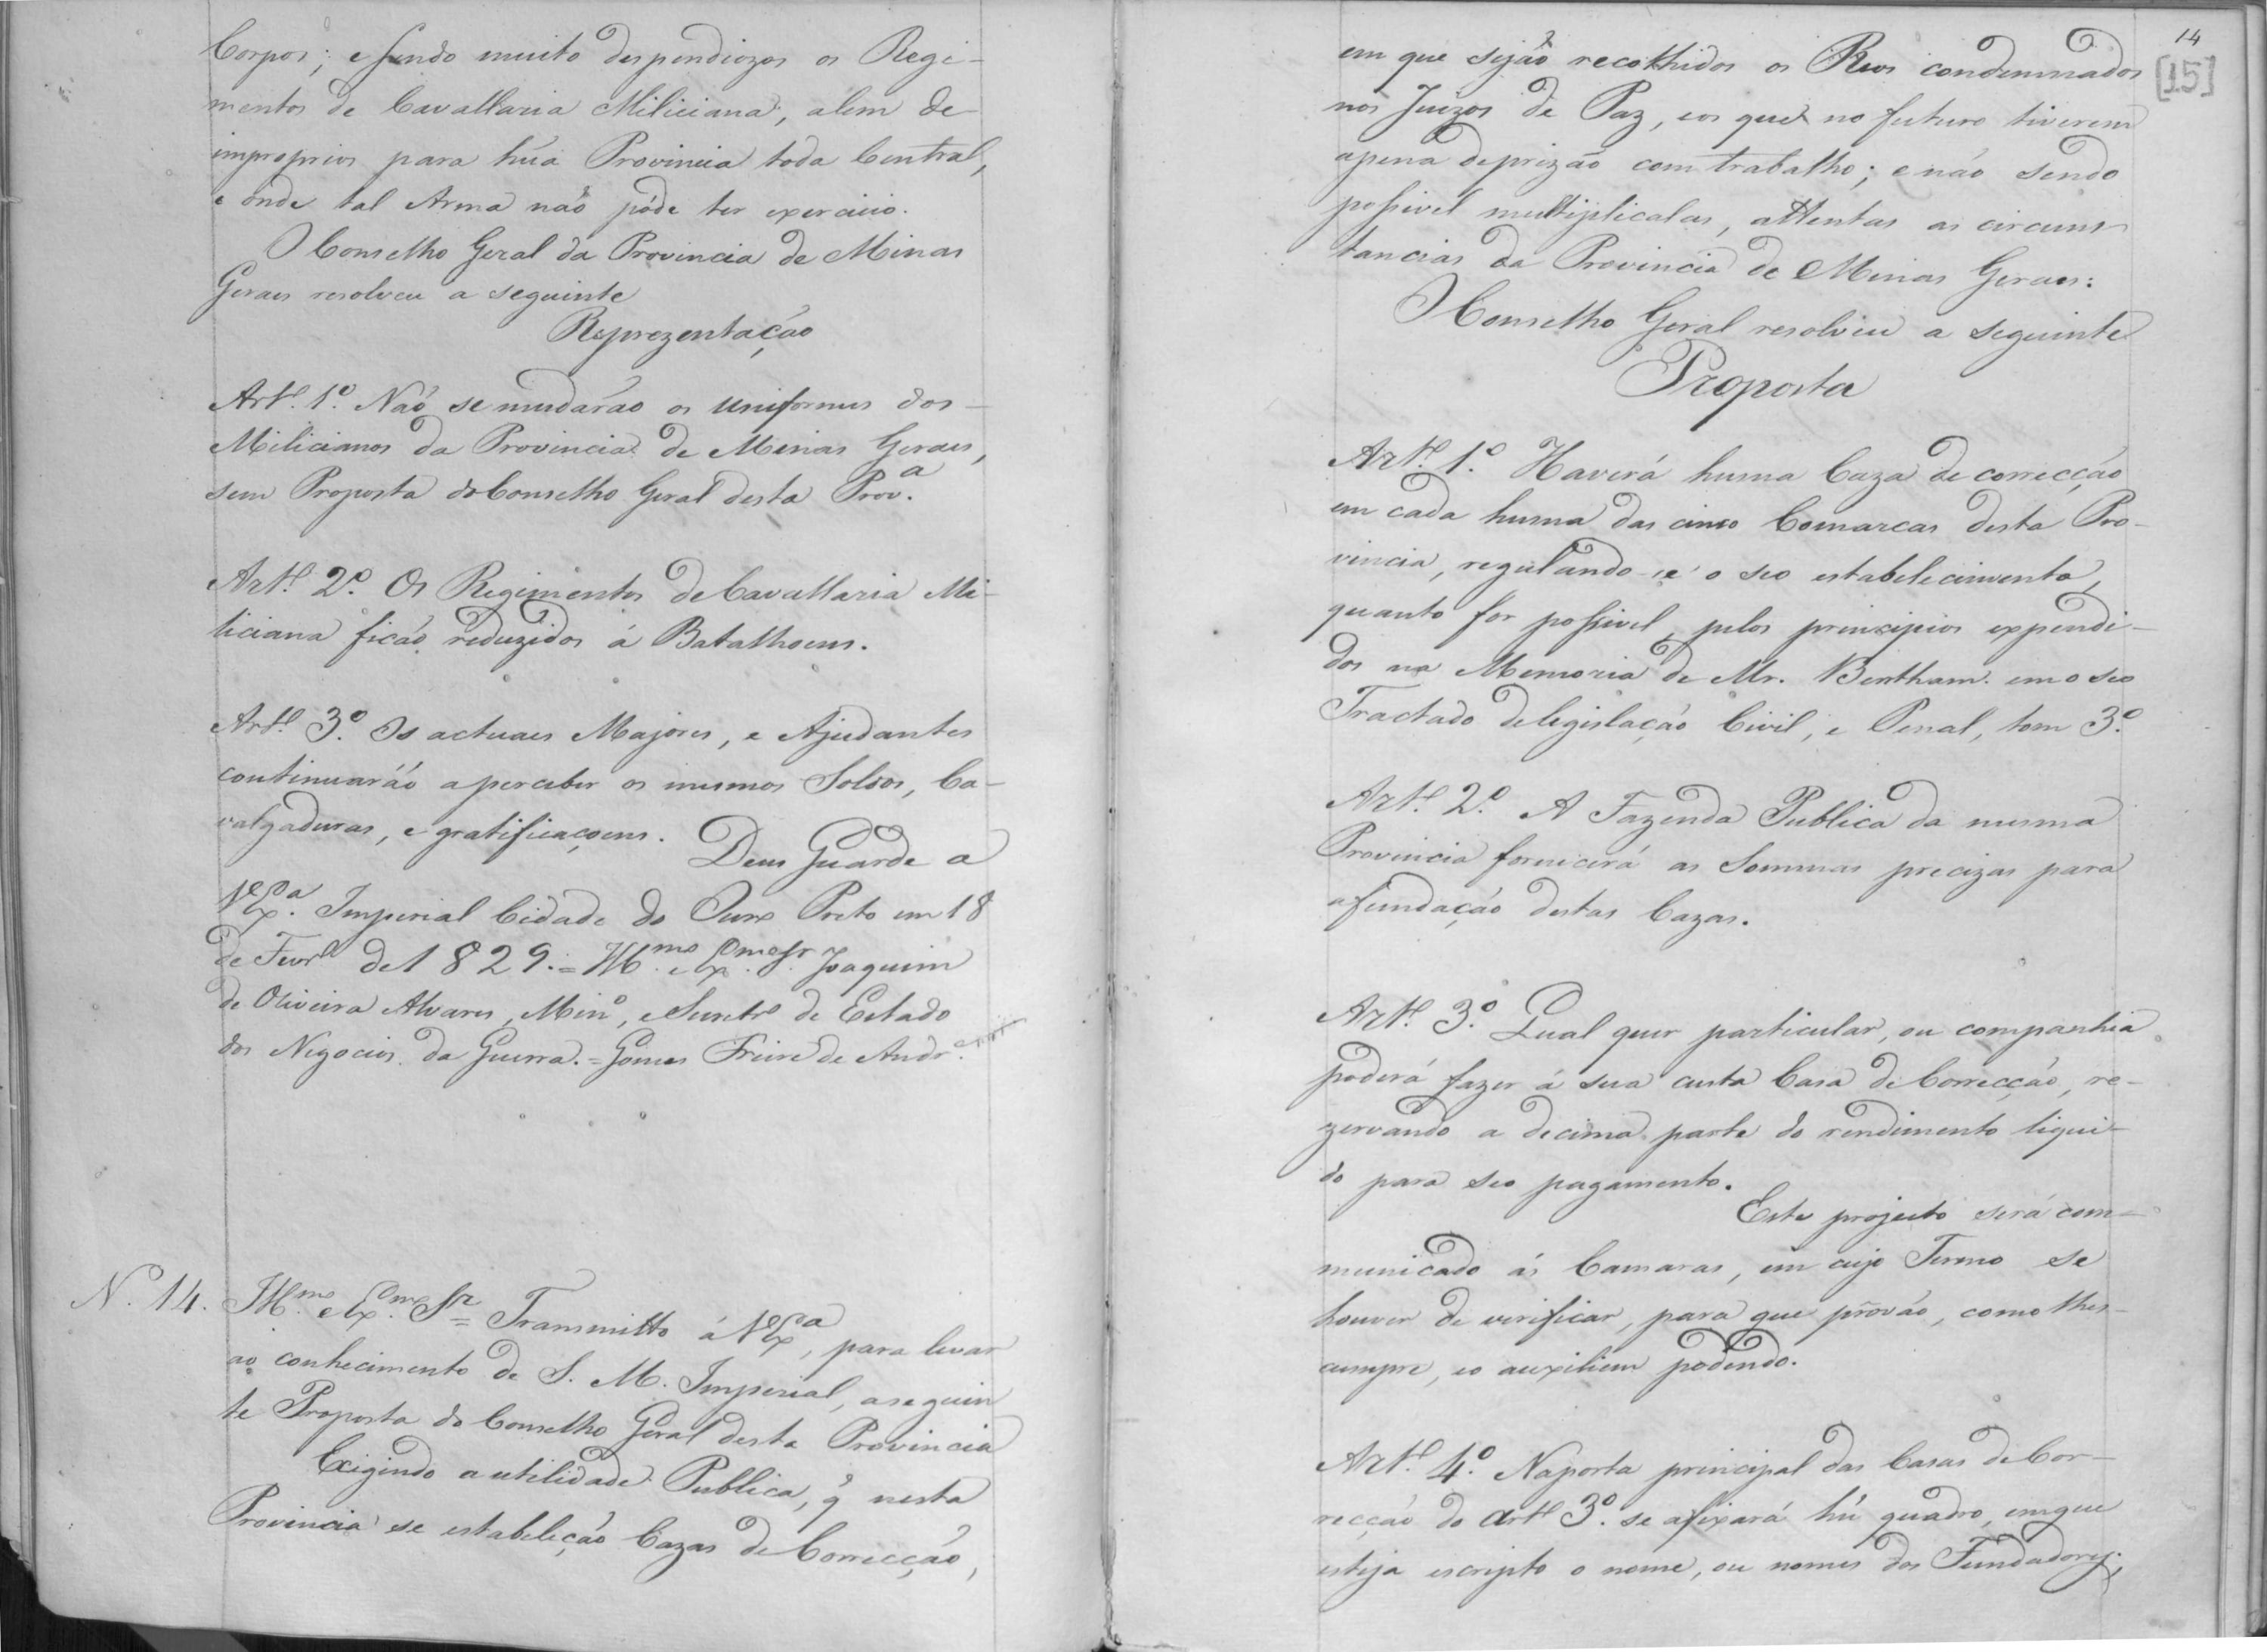 Corpos; e sendo muito despendiozos os Regi-
mentos de Cavallaria Miliciana, alem de
improprios para húa Provincia toda Central,
e onde tal Arma não póde ter exercicio.
O Conselho Geral da Provincia de Minas
Geraes resolveu a seguinte
Reprezentação
Art.º 1.º Não se mudarão os uniformes dos
Milicianos da Provincia de Minas Geraes,
sem Proposta do Conselho Geral desta Prov.ª
Art.º 2.º Os Regimentos de Cavallaria Mi-
liciana ficão reduzidos á Batalhoens.
Art.º 3.º Os actuaes Majores, e Ajudantes
continuaráõ a perceber os mesmos Soldos, Ca-
valgaduras, e gratificaçoens.
Deus Guarde a
V Ex.ª Imperial Cidade do Ouro Preto em 18
de Fevr.º de 1829. = Ill.mo e Ex.mo Sr. Joaquim
de Oliveira Alvares, Min.º, e Secretr.º de Estado
dos Negocios da Guerra. = Gomes Freire de Andr.e
N. 14. Ill.mo e Ex.mo Sr = Transmitto á V Ex.ª, para levar
ao conhecimento de S. M. Imperial, a seguin
te Proposta do Conselho Geral desta Provincia
Exigindo a utilidade Publica, q̃ nesta
Provincia se estabeleção Cazas de Correcção,
14
[15]
em que sejão recolhidos os Reos condemnados
nos Juizos de Paz, e os que no futuro tiverem
a pena de prizão com trabalho; e não sendo
possivel multiplicalas, attentas as circuns
tancias da Provincia de Minas Geraes:
O Conselho Geral resolveu a seguinte
Proposta
Art.º 1.º Haverá huma Caza de correcção
em cada huma das cinco Comarcas desta Pro-
vincia, regulando-se o seo estabelecimento,
quanto for possivel, pelos principios expendi-
dos na Memoria de Mr. Bentham. em o seo
Tractado de legislação Civil, e Penal, tom 3.º
Art.º 2.º A Fazenda Publica da mesma
Provincia fornecerá as Sommas precizas para
a fundação destas Cazas.
Art.º 3.º Qual quer particular, ou companhia
poderá fazer á sua custa Casa de Correcção, re-
zervando a decima parte do rendimento liqui-
do para seo pagamento.
Este projecto será com-
municado ás Camaras, em cujo Termo se
houver de verificar, para que provão, como lhes
cumpre, e o auxiliem podendo.
Art.º 4.º Na porta principal das Casas de Cor-
recção do Art.º 3.º se afixará hú quadro, em que
esteja escripto o nome, ou nomes dos Fundadores;